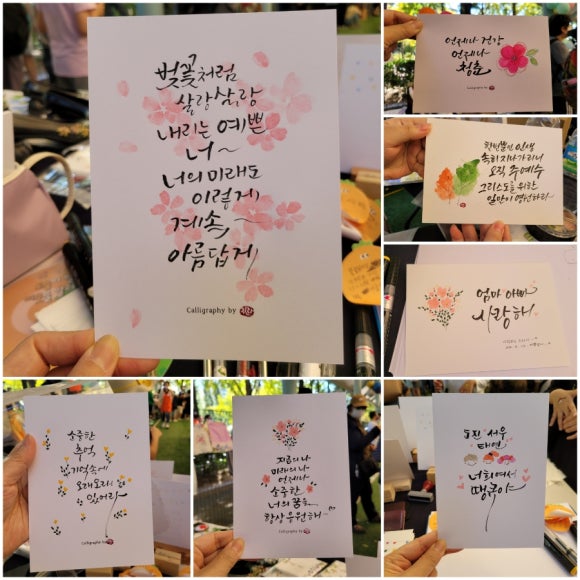 벚꽃처럼
살랑살랑
내리는 예쁜
너~
너의 미래도
이렇게
계속,~
아름답게
Calligraphy by
언제나 건강
언제나
청춘
한번뿐인 인생
속히 지나가리니
오직 주예수
그리스도를 위한
일만이 영원하리
엄마 아빠
사랑해
소중한
추억
기억속에
오래오래
있어라
Calligraphy by
지금의 나
미래의 나
언제나
소중한
너의 꿈을
항상 응원해~
Calligraphy by
서우
태연
너희여서
땡큐야